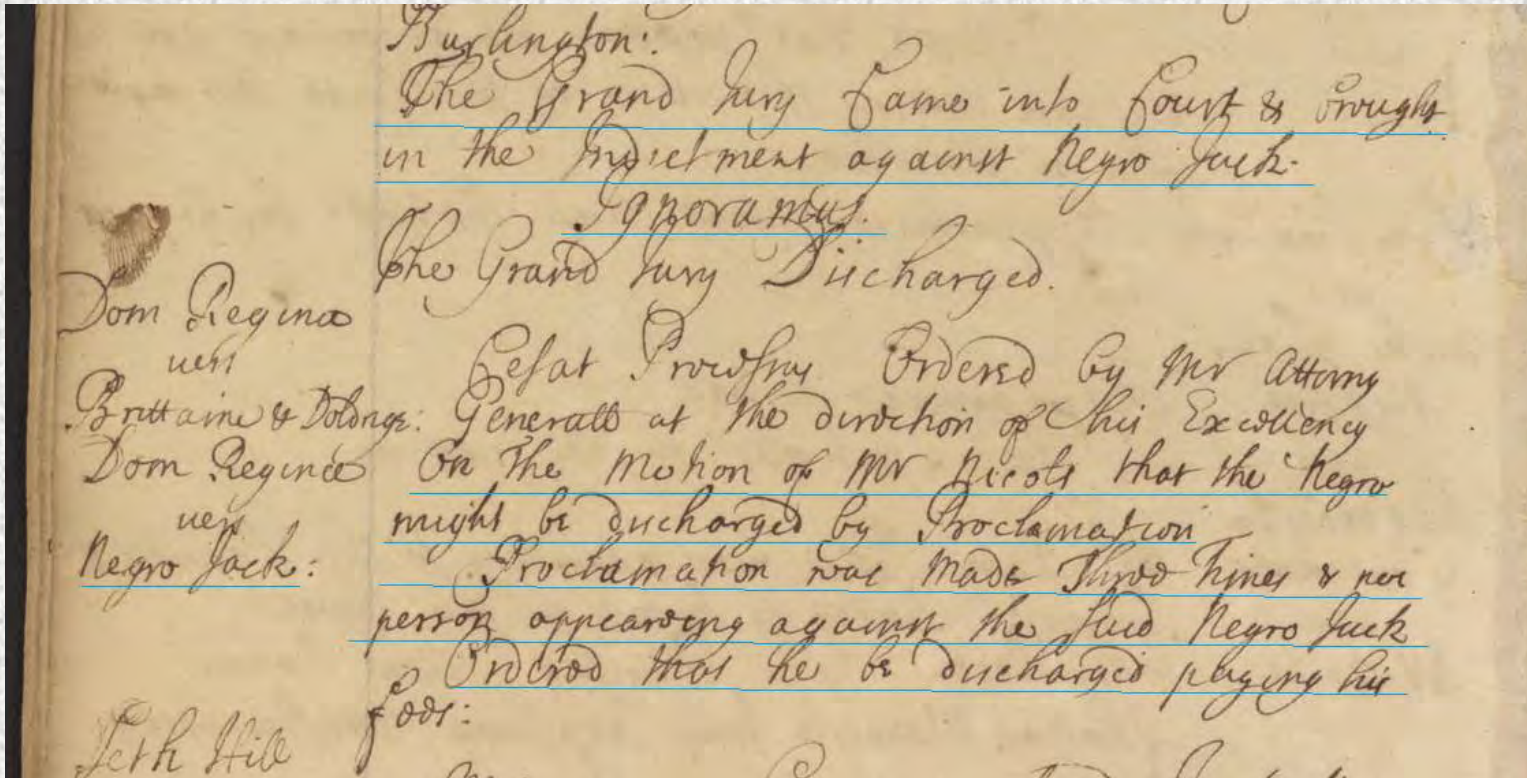 Burlington:
The Grand Jury Came into Court & brought
in the Indictment against Negro Jack.
Ignoramus.
The Grand Jury Discharged.
Dom Regina
vers
Brittaine & Doldnge:
Cesat Processus Ordered by Mr Attorny
Generall at the direction of his Excellency
Dom Reginæ
vers
Negro Jack:
On The Motion of Mr Nicols that the Negro
might be discharged by Proclamation
Proclamation was Made Three Times & noe
person appeareing against the said Negro Jack
Ordered that he be discharged paying his
fees:
Seth Hill